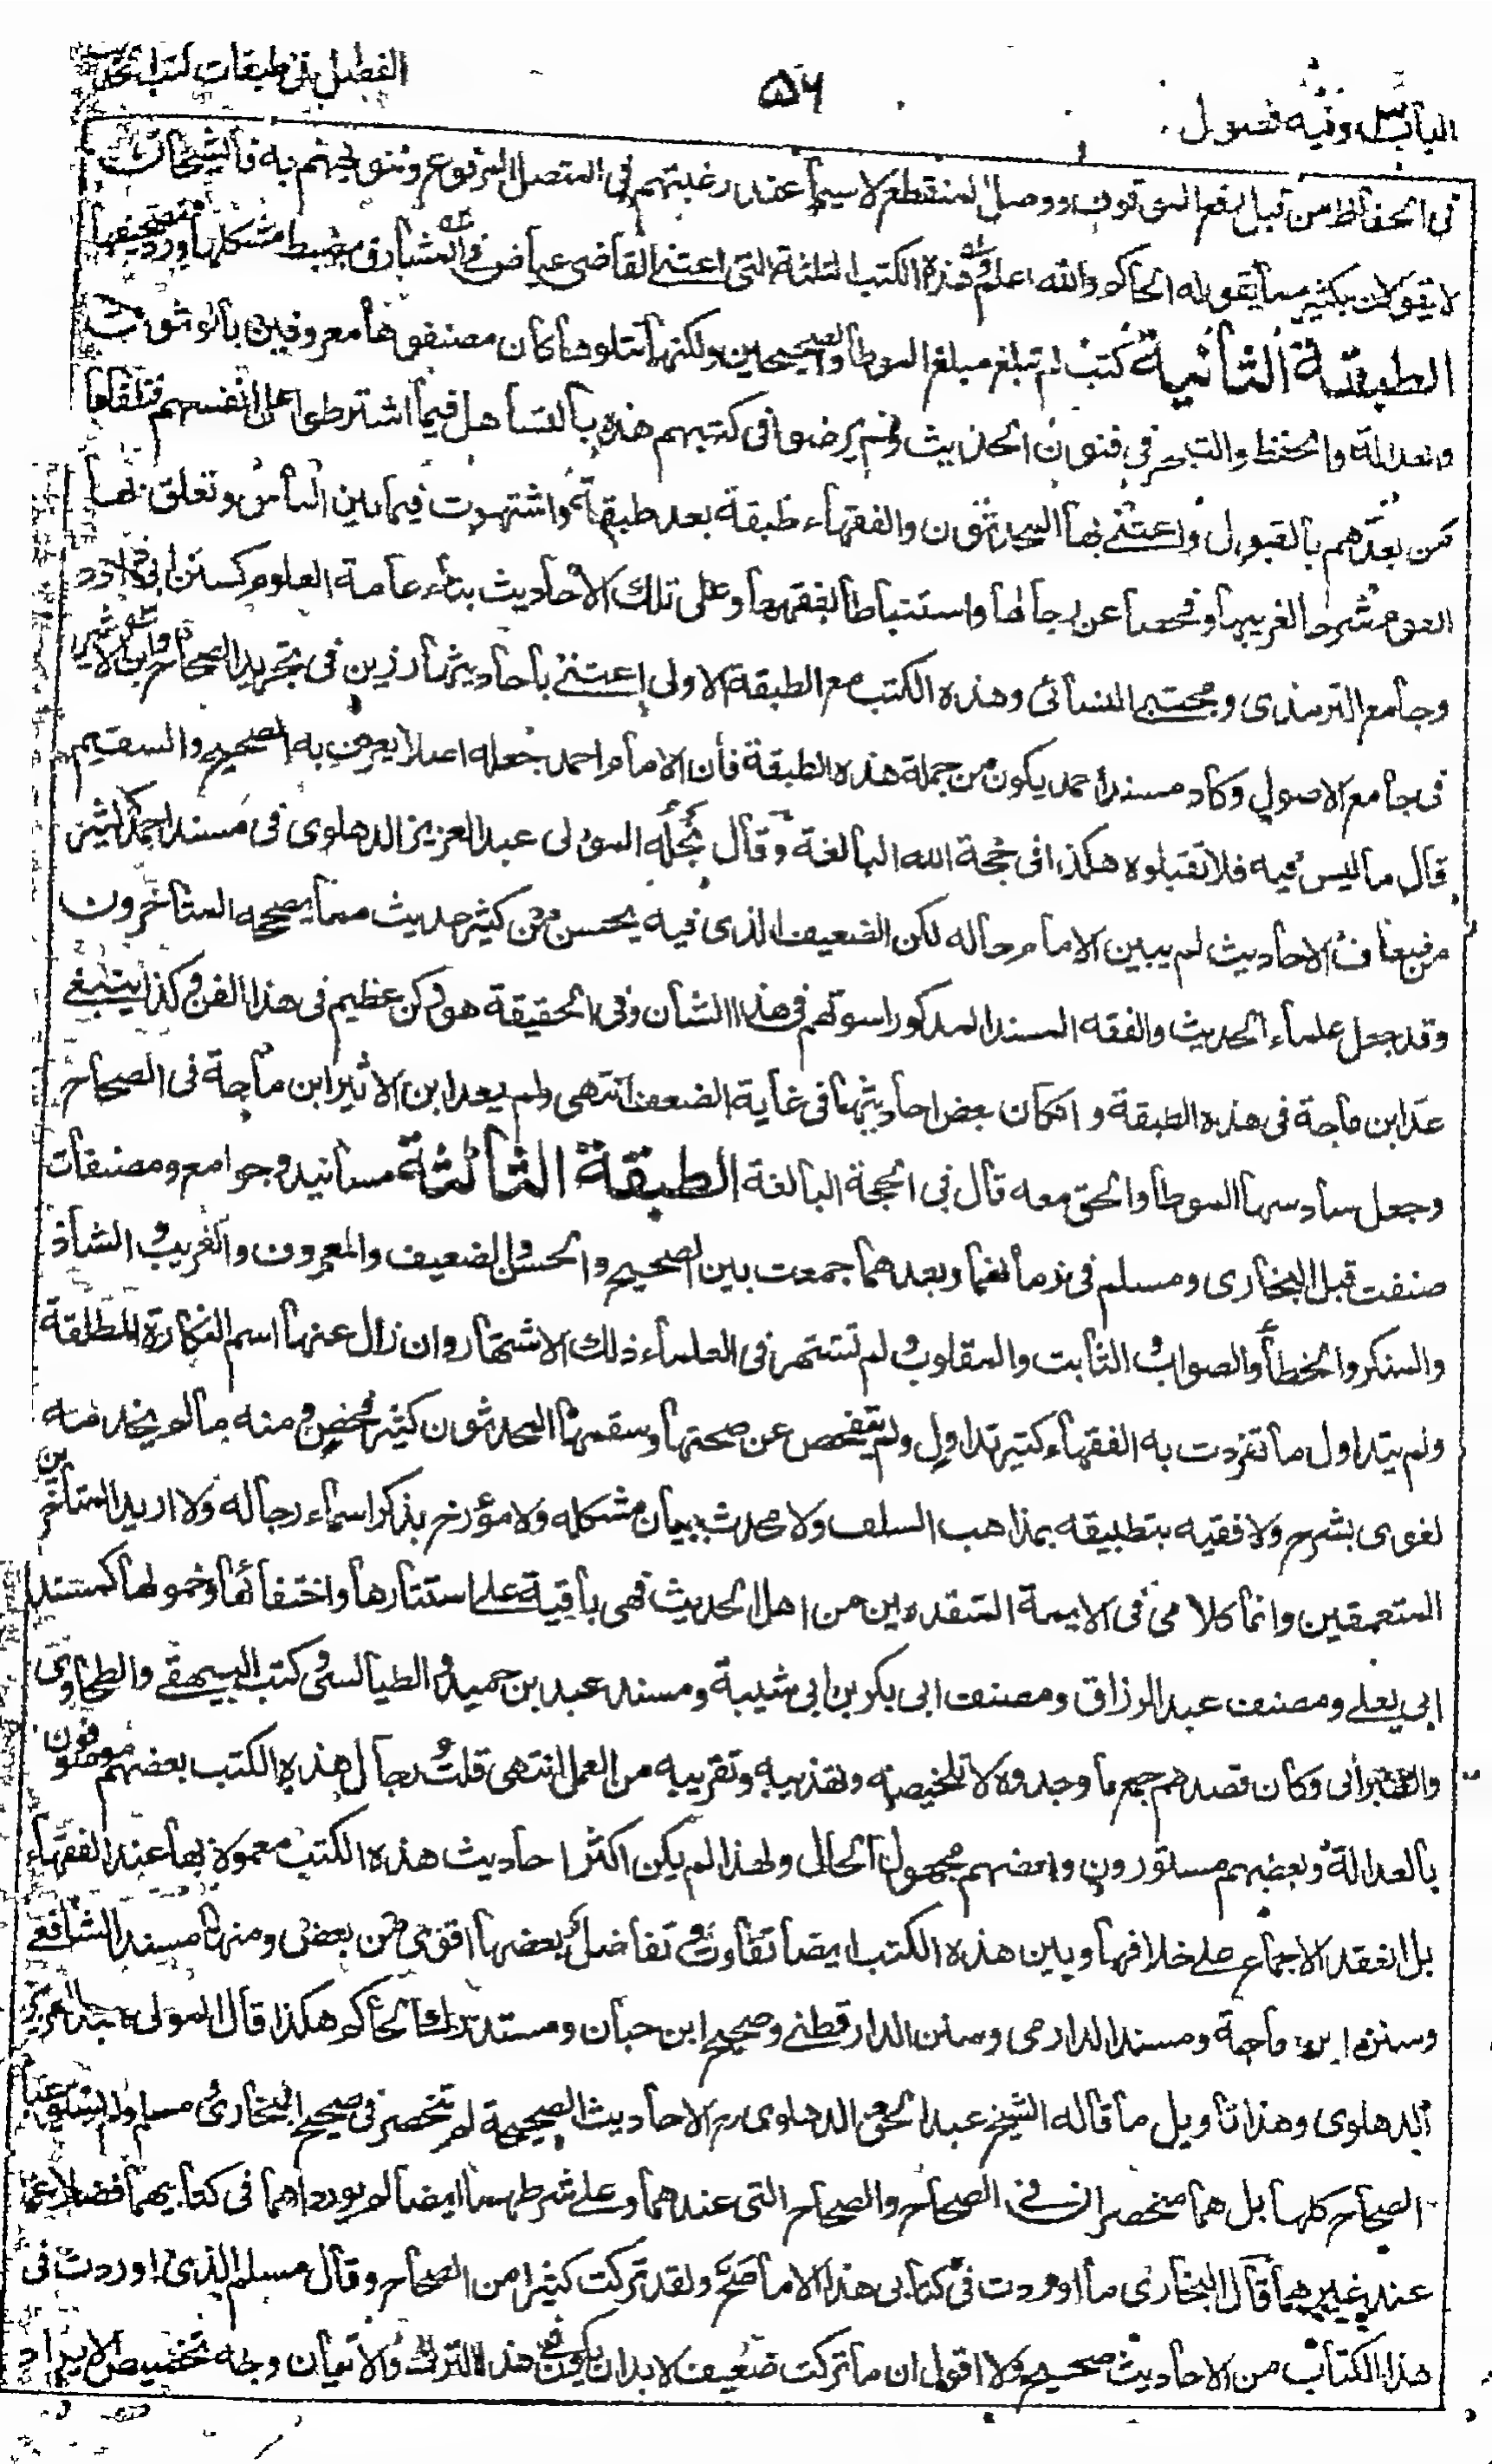 الباب وفيه فصول
۵۶
الفصل في طبقات كتب الحديث
في الحفاظ من قبل رفع الموقوف ووصل المنقطع لاسيما عند رغبتهم في المتصل المرفوع وتنويههم به فالشيخان
لا يقولان بكثير مما يقوله الحاكم والله اعلم وهذه الكتب الثلثة التي اعتنى القاضي عياض في المشارق بضبط مشكلها ورد تصحيفها
الطبقة الثانية كتب لم تبلغ مبلغ الموطأ والصحيحين ولكنها تتلوها كان مصنفوها معروفين بالوثوق
والعدالة والحفظ والتبحر في فنون الحديث ولم يرضوا في كتبهم هذه بالتساهل فيما اشترطوا على انفسهم فتلقاها
من بعدهم بالقبول واعتنى بها المحدثون والفقهاء طبقة بعد طبقة واشتهرت فيما بين الناس وتعلق بها
القوم شرحا لغريبها وفحصا عن رجالها واستنباطا لفقهها وعلى تلك الاحاديث بناء عامة العلوم كسنن ابي داود
وجامع الترمذي ومجتبى النسائي وهذه الكتب مع الطبقة الاولى اعتنى باحاديثها رزين في تجريد الصحاح وابن الاثير
في جامع الاصول وكاد مسند احمد يكون من جملة هذه الطبقة فان الامام احمد جعله اصلا يعرف به الصحيح والسقيم
قال ما ليس فيه فلا تقبلوه هكذا في حجة الله البالغة وقال نجله المولى عبد العزيز الدهلوي في مسند احمد كثير
من ضعاف الاحاديث لم يبين الامام حاله لكن الضعيف الذي فيه يحسن من كثير حديث مما يصححه المتأخرون
وقد جعل علماء الحديث والفقه المسند المذكور اسوتهم في هذا الشان وفي الحقيقة هو ركن عظيم في هذا الفن وكذا ينبغي
عد ابن ماجة في هذه الطبقة وان كان بعض احاديثها في غاية الضعف انتهى ولم يعد ابن الاثير ابن ماجة في الصحاح
وجعل سادسها الموطأ والحق معه قال في الحجة البالغة الطبقة الثالثة مسانيد وجوامع ومصنفات
صنفت قبل البخاري ومسلم في زمانهما وبعدهما جمعت بين الصحيح والحسن والضعيف والمعروف والغريب والشاذ
والمنكر والخطأ والصواب والثابت والمقلوب لم تشتهر في العلماء ذلك الاشتهار وان زال عنها اسم النكارة المطلقة
ولم يتداول ما تفردت به الفقهاء كثير تداول ولم يتفحص عن صحتها وسقمها المحدثون كثير فحص ومنه ما لم يخدمه
لغوي بشرح ولا فقيه بتطبيقه بمذاهب السلف ولا محدث ببيان مشكله ولا مؤرخ بذكر اسماء رجاله ولا اريد المتأخرين
المتعمقين وانما كلامي في الايمة المتقدمين من اهل الحديث فهي باقية على استتارها واختفائها وخمولها كمسند
ابي يعلى ومصنف عبد الرزاق ومصنف ابي بكر بن ابي شيبة ومسند عبد بن حميد والطيالسي وكتب البيهقي والطحاوي
والطبراني وكان قصدهم جمع ما وجدوه لا تلخيصه وتهذيبه وتقريبه من العمل انتهى قلت رجال هذه الكتب بعضهم موصوفون
بالعدالة وبعضهم مستورون وبعضهم مجهول الحال ولهذا لم يكن اكثر احاديث هذه الكتب معمولا بها عند الفقهاء
بل انعقد الاجماع على خلافها وبين هذه الكتب ايضا تفاوت وتفاضل بعضها اقوى من بعض ومنها مسند الشافعي
وسنن ابن ماجة ومسند الدارمي وسنن الدارقطني وصحيح ابن حبان ومستدرك الحاكم هكذا قال المولى عبد العزيز
الدهلوي وهذا تأويل ما قاله الشيخ عبد الحق الدهلوي رح الاحاديث الصحيحة لم تنحصر في صحيح البخاري ومسلم ولم يستوعبا
الصحاح كلها بل هما منحصران في الصحاح والصحاح التي عندهما وعلى شرطهما ايضا لم يورداهما في كتابيهما فضلا عما
عند غيرهما قال البخاري ما اوردت في كتابي هذا الا ما صح ولقد تركت كثيرا من الصحاح وقال مسلم الذي اوردت في
هذا الكتاب من الاحاديث صحيح ولا اقول ان ما تركت ضعيف لا بد ان يكون في هذا الترك والاتيان وجه تخصيص الايراد